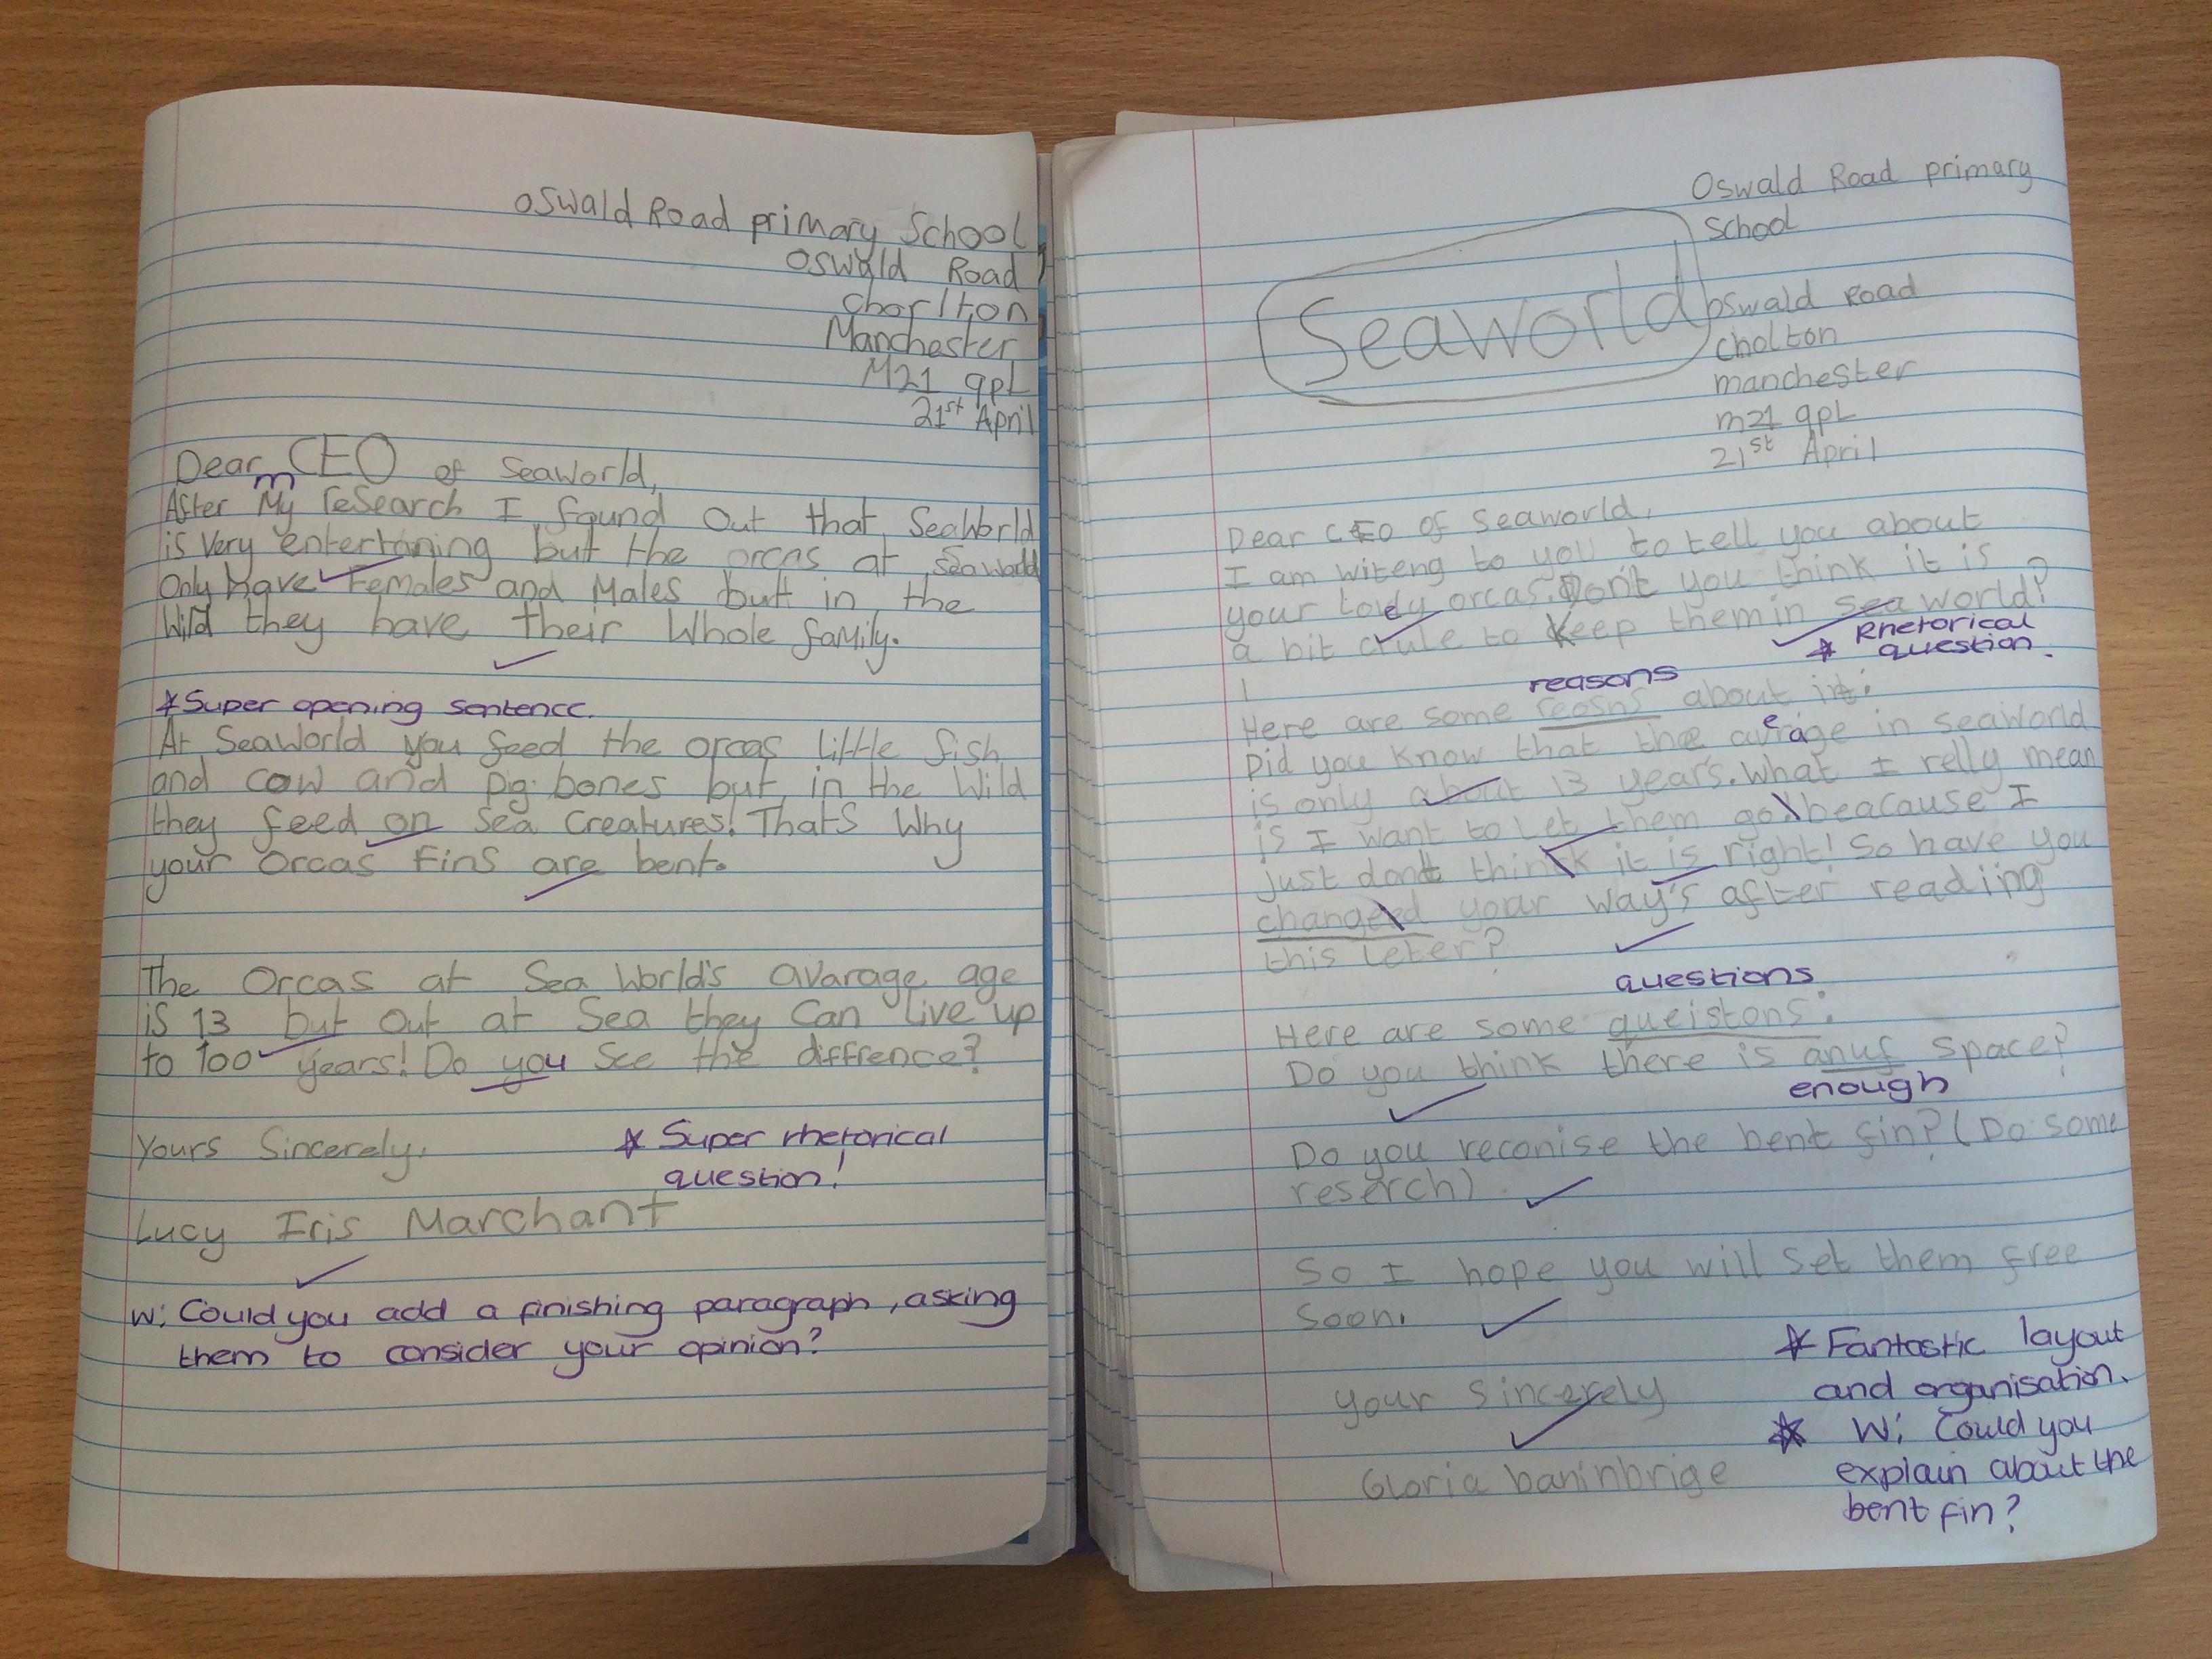 Oswald Road primary School
Oswald Road
Chorlton
Manchester
M21 9pL
21st April
Dear CEO of SeaWorld,
m
After My reSearch I found Out that SeaWorld
is Very entertaning but the orcas at Seaworld
Only have Females and Males but in the
Wild they have their Whole family.
*Super opening sentence.
At SeaWorld you feed the orcas little fish
and cow and pig bones but in the Wild
they feed on Sea Creatures! That's Why
your Orcas Fins are bent.
The Orcas at Sea World's avarage age
is 13 but Out at Sea they Can Live up
to 100 years! Do you See the diffrence?
Yours Sincerely,
* Super rhetorical
question!
Lucy Iris Marchant
W: Could you add a finishing paragraph, asking
them to consider your opinion?
Oswald Road primary
School
Seaworld
Oswald Road
cholton
manchester
m21 9pL
21st April
Dear CEO of Seaworld,
I am witeng to you to tell you about
your orcas. Don't you think it is
a bit crule to keep them in sea world?
* Rhetorical
question.
reasons
Here are some reosns about it:
Did you know that the average in seaworld
is only about 13 years. What I relly mean
is I want to let them go beacause I
just dont think it is right! So have you
changed your way's after reading
this leter?
questions
Here are some queistons:
Do you think there is anuf space?
enough
Do you reconise the bent fin? (Do some
reserch)
So I hope you will set them free
soon.
* Fantastic layout
and organisation.
your sincerely
* W: Could you
explain about the
bent fin?
Gloria baninbrige